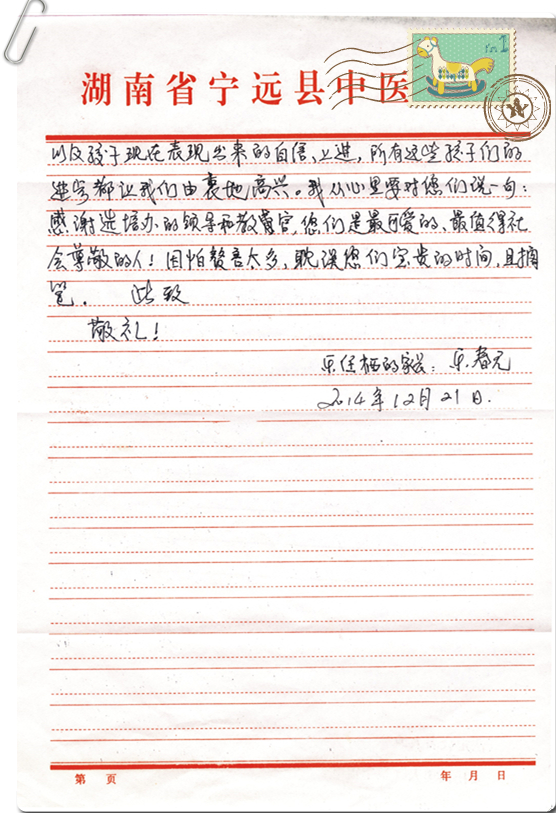 湖南省宁远县中医
1
以及孩子现在表现出来的自信、上进,所有这些孩子们的
进步都让我们由衷地高兴。我从心里要对您们说一句:
感谢进培办的领导和教育官,您们是最可爱的、最值得社
会尊敬的人!因怕赘言太多,耽误您们宝贵的时间,且搁
笔. 此致
敬礼!
乐佳栖的家长:乐春元
2014年12月21日.
第 页 年 月 日